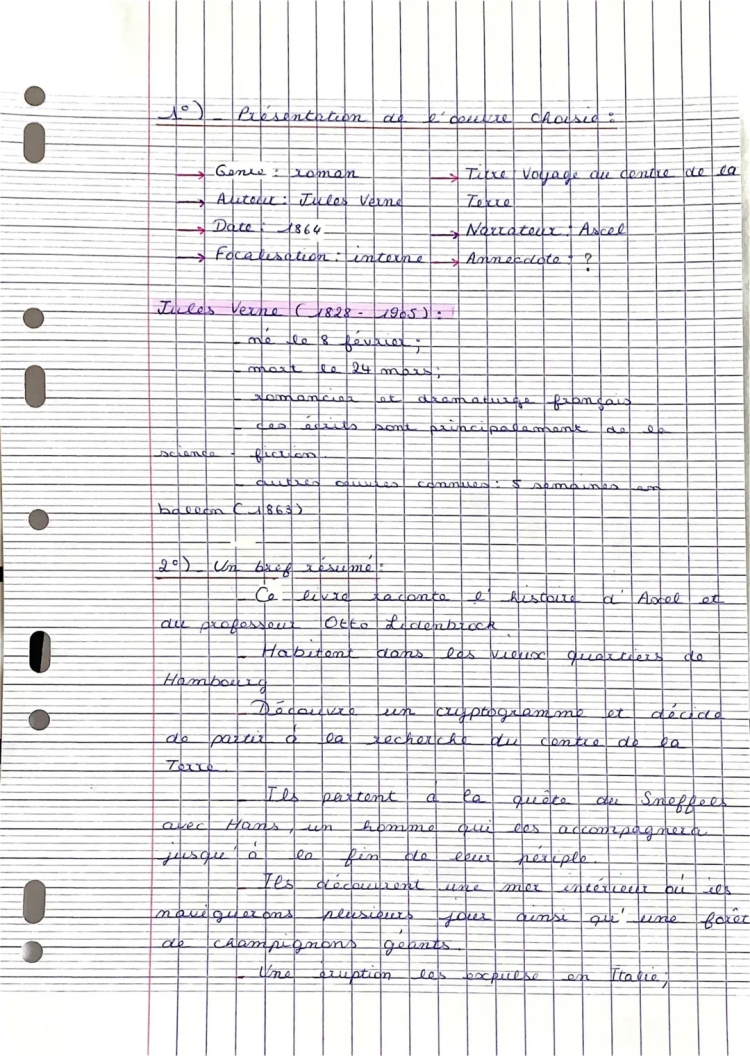 1°) - Présentation de l'œuvre choisie :
→ Genre : roman → Titre : Voyage au centre de la
→ Auteur : Jules Verne Terre
→ Date : 1864 → Narrateur : Axel
→ Focalisation : interne → Annecdote : ?
Jules Verne (1828 - 1905) :
- né le 8 février ;
- mort le 24 mars ;
- romancier et dramaturge français
- ces écrits sont principalement de la
science - fiction.
- autres œuvres connues : 5 semaines en
ballon (1863)
2°) - Un bref résumé :
- Ce livre raconte l'histoire d'Axel et
du professeur Otto Lidenbrock
- Habitent dans les vieux quartiers de
Hambourg
- Découvre un cryptogramme et décide
de partir à la recherche du centre de la
Terre
- Ils partent à la quête du Sneffels
avec Hans, un homme qui les accompagnera
jusqu'à la fin de leur périple.
- Ils découvrent une mer intérieur où ils
naviguerons plusieurs jour ainsi qu'une forêt
de champignons géants.
- Une éruption les expulse en Italie ;